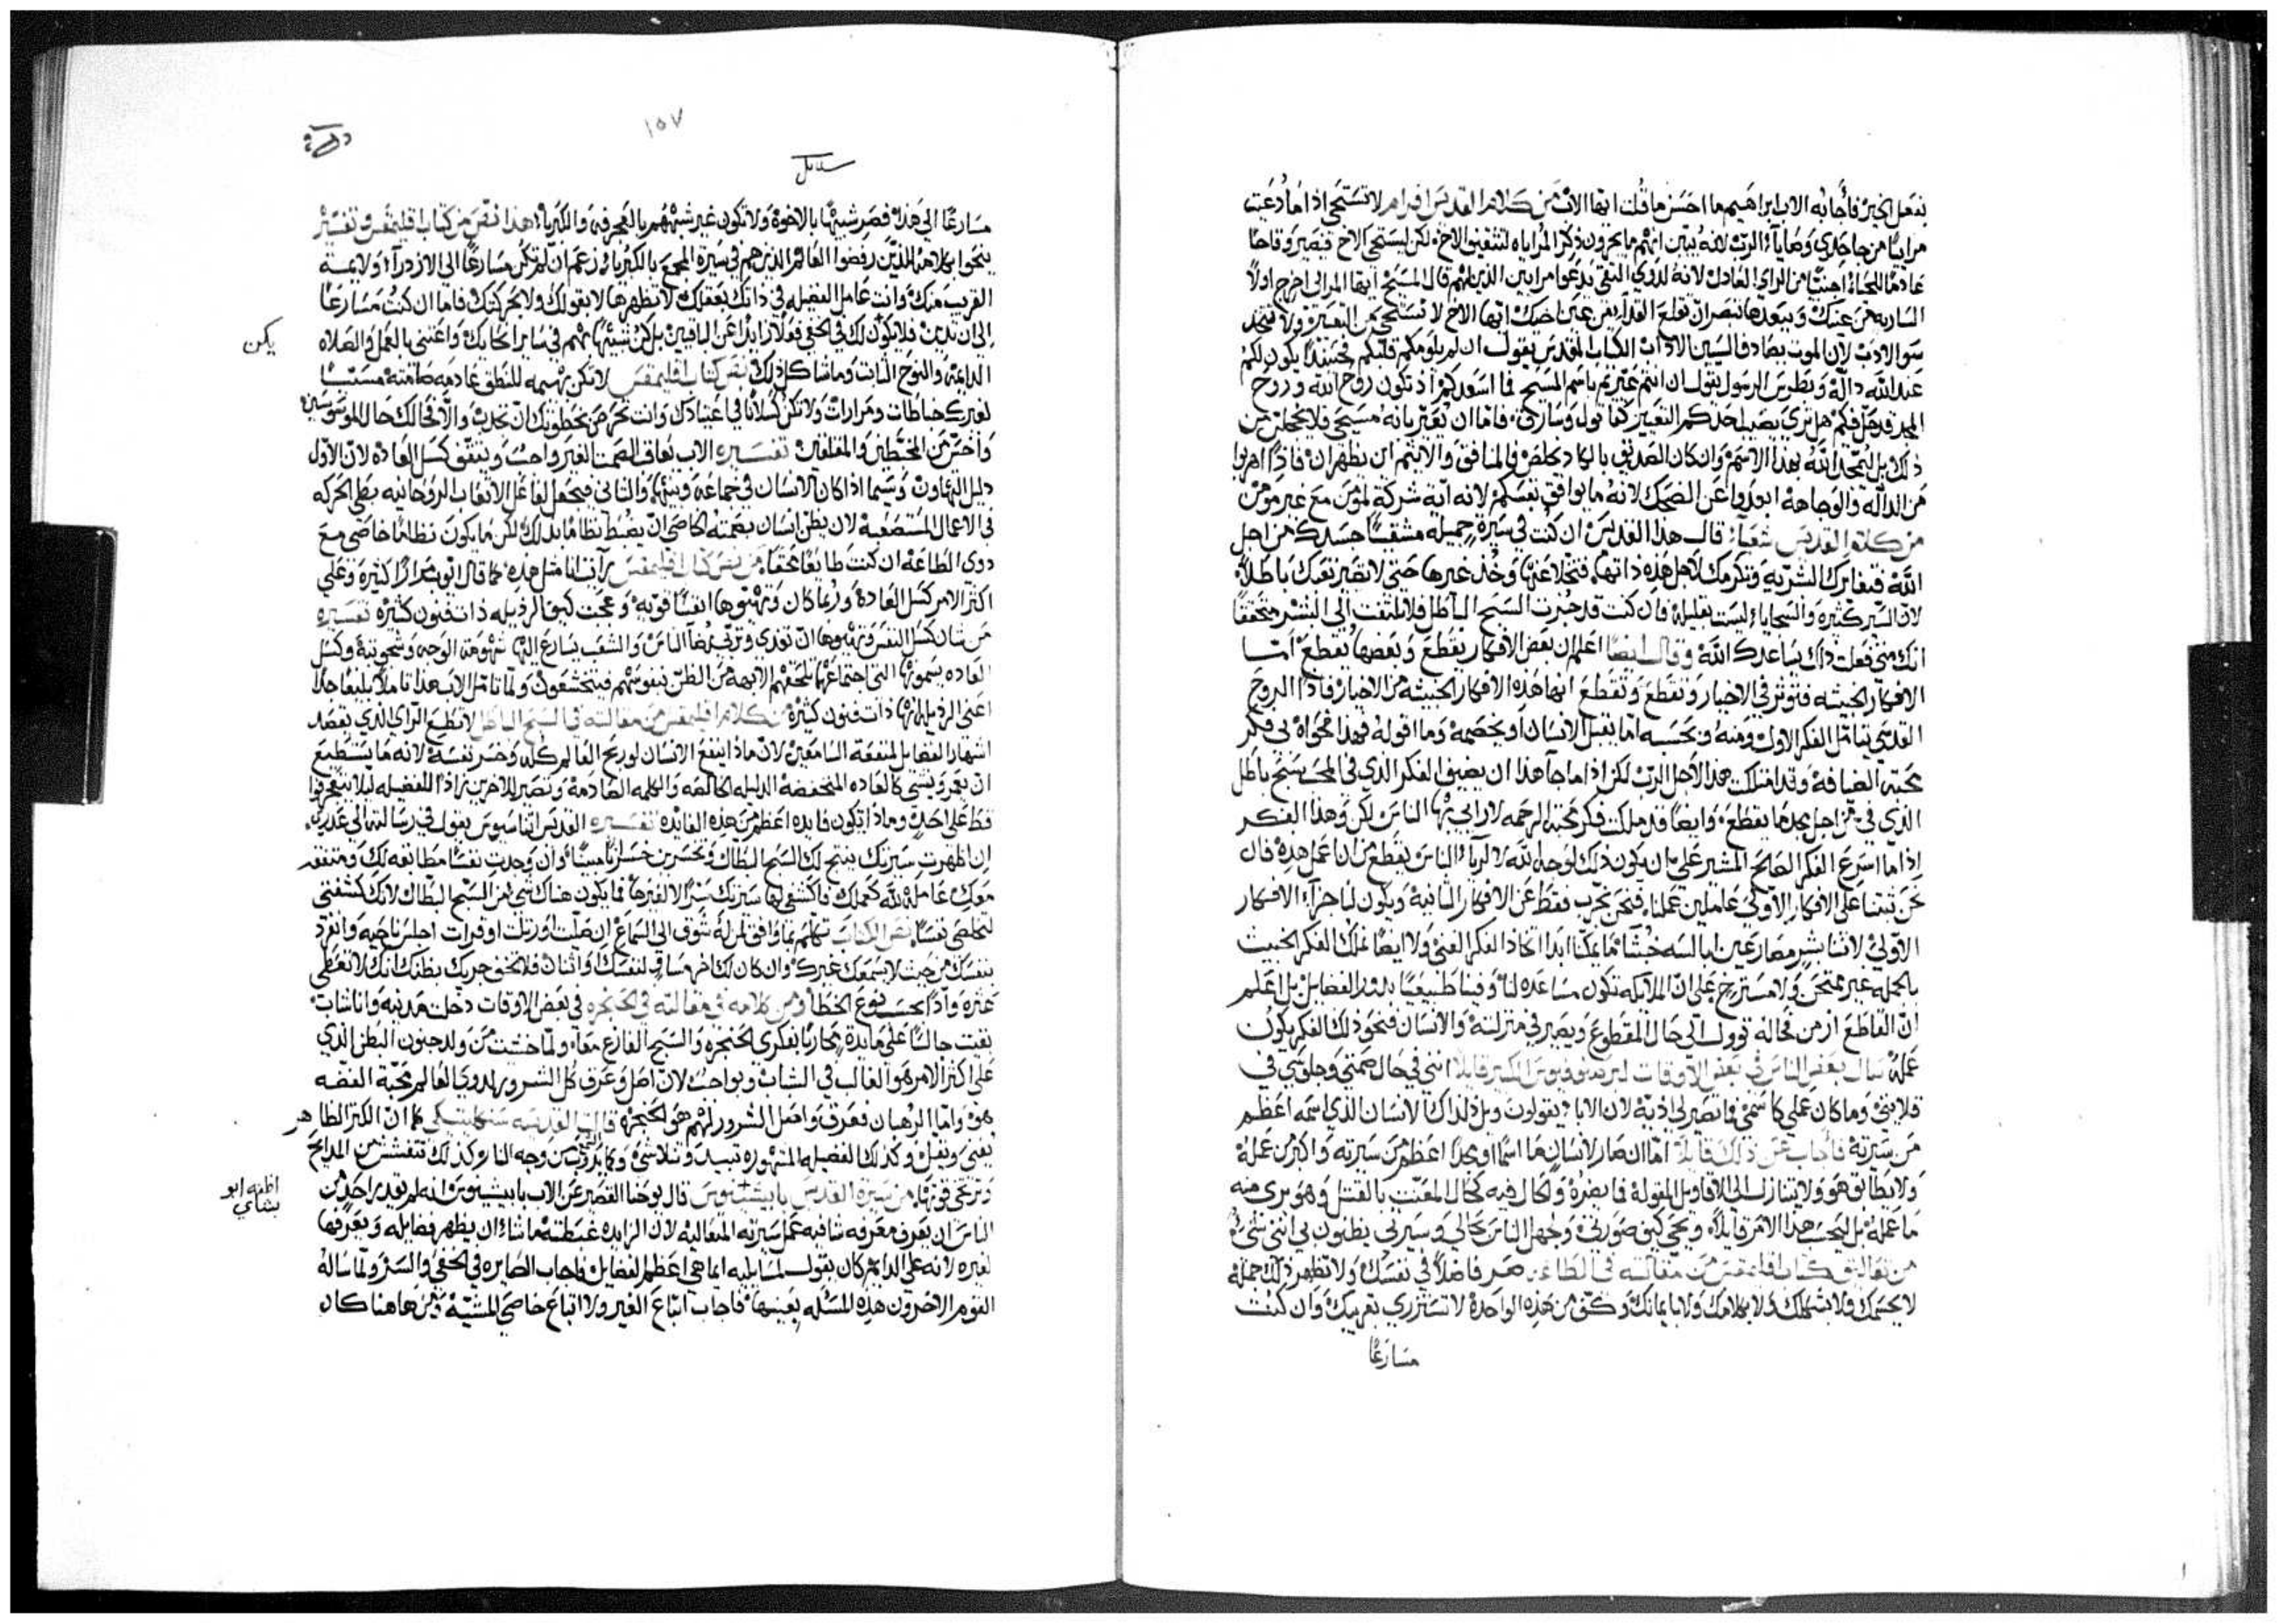 نفعل الخير فأجابه الاب ابراهيم ما احسن ما قلت ايها الاب من كلام القديس افرام لا تستحي اذا ما دعيت
مرايا من جاحدي وصايا الرب لانه يبين انهم ما يجرون ذكر المراياه لتنتفع الاخ لكن ليستحي الاخ فيصير وقاحا
عادما للحياء اجنبيا من الراي العادل لانه لذوي التقى يدعوا مرايين الذين لهم قال المسيح ايها المرائي اخرج اولا
الساريه من عينك وتبعدها فتبصر ان تقلع القذا من عين اخيك ايها الاخ لا تستحي من التعيير ولا تتخذ
سو الادب لان الموت يصادف السيين الاداب الكتاب المقدس يقول ان لم يلومكم قلبكم فحينئذ يكون لكم
عند الله داله وبطرس الرسول يقول ان انتم عيرتم باسم المسيح فما اسعدكم اذ تكون روح الله وروح
المجد قد حل فيكم هل ترى يصيب احدكم التعيير كقاتول وسارق فاما ان يعير بانه مسيحي فلا يخجلن من
ذلك بل ليمجد الله بهذا الاسم وان كان الصديق بالكاد يخلص فالمنافق والاثيم اين يظهران فاذا اهربوا
من الداله والوجاهة ابعدوا عن الضحك لانه ما يوافق نفسكم لانه اية شركة لمؤمن مع غير مومن
من كلام القديس شعيا قال هذا القديس ان كنت في سيرة جميله مشقيا جسدك من اجل
الله فيفاركك البشريه وتكرمك لاجل هذه ذاتها فتخلا عنها وخذ غيرها حتى لا تصير تعبك باطلا
لان السير كثيره والسجايا ليست بقليله فان كنت قد حزت السبح الباطل فلا تلتفت الى البشر متحققا
انك متى فعلت ذلك يساعدك الله وقال ايضا اعلم ان بعض الافكار يقطع وبعضها يقطع اما
الافكار الخبيثه فتوثر في الاخيار وتقطع وتقطع ايضا هذه الافكار الخبيثه من الاخيار فاذا الروح
القدسي يتامل الفكر الاول ومنه وبحسبه اما يقبل الانسان او يخصمه وما اقوله فهذا فحواه لي فكر
محبة الضيافة وقد امتلكت هذا لاجل الرب لكن اذا ما جا هذا ان يضيف الفكر الذي في المجد سبح باطل
الذي في من اجل مجد ما يقطع وايضا قد ملكت فكر محبة الرحمه لا رايي بها الناس لكن وهذا الفكر
اذا ما اسرع الفكر الصالح المشير علي ان يكون ذلك لوجه الله لا لريا الناس يقطع من ان اعمل هذه فان
نحن ثبتنا على الافكار الاولى عاملين عملنا فنحن نجرب فقط عن الافكار الثانية ويكون لنا جزا الافكار
الاولى لاننا بشر مصارعين ابالسه خبثا فما يمكنا ابدا اتخاذ الفكر الغني ولا ايضا نملك الفكر الخبيث
بالجمله غير ممتحن ولا مستريح على ان الملايكه تكون مساعده لنا وفينا طبيعيا بذور الفضايل بل اعلم
ان القاطع از من فحاله توول الى حال المقطوع ويصير في منزلته والانسان فنحو ذلك الفكر يكون
عمله سال بعض الناس في بعض الاوقات لبرصنوفيوس الكبير قايلا انني في حال صمتي وجلوسي في
قلايتي وما كان عملي كاسمي فما تصير لي اذية لان الابا يقولون ويل لذاك الانسان الذي اسمه اعظم
من سيرته فاجاب عن ذلك قايلا اما ان صار لانسان ما اسما او مجدا اعظم من سيرته واكبر من عمله
ولا يطابق هو ولا يتنازل الى الاقاويل المقوله فما يضره ولكال فيه كحال المعنت بالقتل وهو بري منه
ما عمله بل ليحسب هذا الامر قايلا ويحي كيف صورتي وجهل الناس بحالي وسيرتي يظنون بي انني شي
من تعاليق كتاب اقليمقس من مقالته في الطاعه صر فاضلا في نفسك ولا تظهر ذلك جمله
لا بجسمك ولا بشكلك ولا بكلامك ولا بايمانك وكف من هذه الواحدة لا تستزري بقريبك وان كنت
مسارعا
١٥٧
مسارعا الى هذه فصر شبيها بالاخوة ولا تكون غير شبههم بالعجرفه والكبريا هذا نص من كتاب اقليمقس وتفسير
ينحوا بكلامه للذين رفضوا العالم الذين هم في سيرة المجمع بالكبريا زعم ان لم تكن مسارعا الى الازدرا ولايمة
القريب منك وانت عامل الفضيله في ذاتك بعقلك لا تظهرها لا بقولك ولا بحركتك فاما ان كنت مسارعا
الى ان تدين فلا يكون لك في الخفي فعلا زايدا عن الباقين بل كن شبيها بهم في ساير احكامك واعتني بالعمل والصلاه
يكن
الدايمة والنوح الثابت وما شاكل ذلك نص كتاب اقليمقس لا تكن بهيمه للنطق عادمه صامته مسببا
لغيرك خباطات ومرارات ولا تكن كسلانا في اعتيادك وانت تحرص بخطوتك ان تحدث والا فحالك حال الموسوسين
واخس من المختطين والمقلقين تفسيره الاب يعاف الصمت الغير واجب وينتف كسل العادة لان الاول
دليل التهاون وسيما اذا كان الانسان في جماعة وبينها والثاني فيجعل الفاعل الاتعاب الروحانيه بطي الحركه
في الاعمال المستصعبة لان يظن انسان بصمته كاصى ان يضبط نظاما بذلك لكن ما يكون نظاما خاصى مع
ذوي الطاعه ان كنت طايعا محققا من نص كتاب اقليمقس رايت انا مثل هذه كما قال ايوب مرارا كثيرة وعلي
اكثر الامر كسل العادة وربما كان وتهيوها انفسا قوية وعجبت كيف الرذيله ذات فنون كثيرة تفسيره
من شان كسل النفس وتهيوها ان تعدي وتربي رضا الناس والشعب يسارع اليها شهومة الوجه وشحوبته وكسل
العاده يسموها التي اجتماعها تلحقهم الابهة من الظن بنفوسهم فيتخشعون ولما تامل الاب هذا تاملا بليغا جدا
اعني الرذيله بانها ذات فنون كثيرة من كلام اقليمقس من مقالته في السبح الباطل لا تطع الراي الذي يقصد
اشهار الفضايل لمنفعة السامعين لان ماذا ينفع الانسان لو ربح العالم كله وخسر نفسه لانه ما يستطيع
ان يعمر وينشي كالعاده المنخفضه الذليله الخالصه والكلمه الصادمة وتصير للاخرين زادا للفضيله ليلا يتعجرفوا
قط على احد وماذا تكون فايده اعظم من هذه الفايده تفسيره القديس اثناسيوس يقول في رسالته الى عذري
ان اظهرت سيرتك ينتج لك السبح البطال وتخسرين خسرانا مبينا وان وجدت نفسا مطابقه لك ومتفقه
معك عاملة لله كعملك فاكشفي لها سيرتك سرا لا لغيرها فما يكون هناك شي من السبح البطال لانك كشفتي
لتخلصي نفسا نص الكتاب تكلم بما وافق لمن له شوق الى السماع ان صليت او رتلت او قرات اجلس ناحيه وانفرد
بنفسك من حيث لا يسمعك غيرك وان كان لك اخر مساو لنفسك او اثنان فلا تخف جربك بظنك انك لا تعطى
عثرة واذا تحسب نوع الخطا ومن كلامه في مقالته في الحنجره في بعض الاوقات دخلت مدينه وانا شاب
بقيت جالسا على مايدة محاربا بفكري الحنجرة والسبح الفارغ معا ولما خشيت من ولد جنون البطن الذي
على اكثر الامر هو الغالب في الشباب وبواجب لان اصل وعرق كل الشرور لذوي العالم محبة الفضه
هو واما الرهبان فعرق واصل الشرور لهم هو الحنجرة قالت القديسه سنكليتكي كما ان الكنز الظاهر
يفنى ويقل وكذلك الفضيله المشهوره تبيد وتتلاشى وكما يذوب الشمع من وجه النار وكذلك تنفشش من المدايح
وترتخي قوتها من سيرة القديس بابيشنوس قال يوحنا القصير عن الاب بابيشينوس انه لم يقدر احد من
اظنه ابو بشاي
الناس ان يعرف معرفه شافيه عمل سيرته المتعاليه لان الزايده غبطته ما شاء ان يظهر فضايله ويعرفها
لغيره لانه على الدايم كان يقول لمسايليه ايما هي اعظم الفضايل فاجاب الصايره في الخفي والستر ولما ساله
القوم الاخرون هذه المسئله بعينها فاجاب اتباع الغير ولا اتباع خاصى المشية ومن هاهنا كان